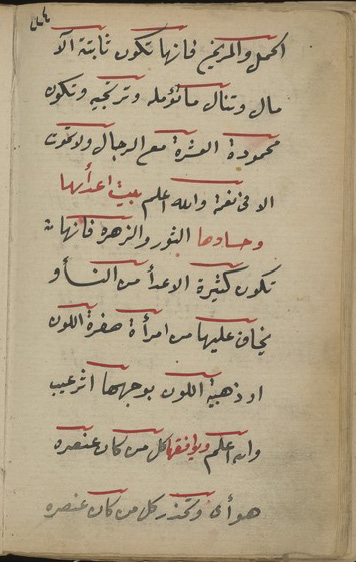 ٤٤٤
الحمل والمريخ فانها تكون ثابتة الآ
مال وتنال ماتؤمله وترتجيه وتكون
محمودة العشرة مع الرجال ولا تموت
الا فى نعمة والله اعلم بيت اعدائها
وحسادها الثور والزهره فانها
تكون كثيرة الاعدأ من النسأ و
يخاف عليها من امرأة صفرة اللون
او ذهبية اللون بوجهها اثر عيب
والله اعلم ويوافقها كل من كان عنصره
هوأى وتحذر كل من كان عنصره